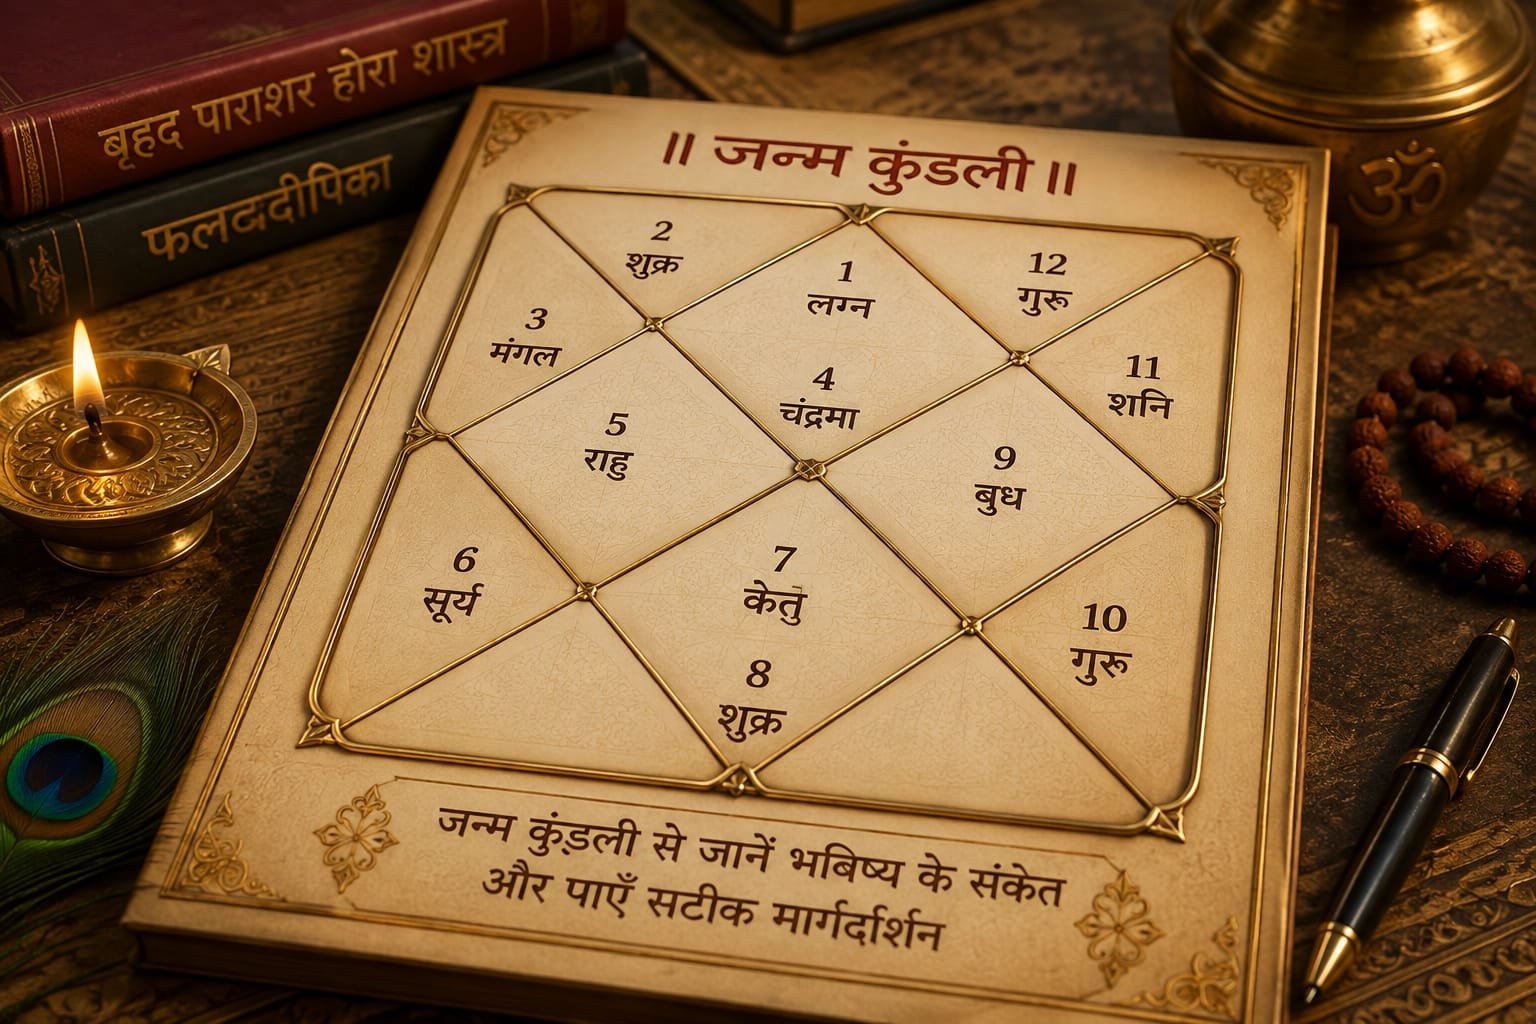 बृहद पाराशर होरा शास्त्र
॥ जन्म कुंडली ॥
2
शुक्र
1
लग्न
12
गुरू
3
मंगल
11
शनि
4
चंद्रमा
5
राहु
9
बुध
6
सूर्य
7
केतु
10
गुरू
8
शुक्र
जन्म कुंड़ली से जानें भबिष्य के संकेत
और पाएँ सटीक मार्गदार्शन
ॐ